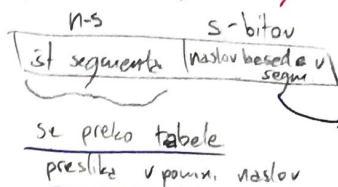 n-s s-bitov
št segmenta naslov besede v
segm
se preko tabele
preslika v pomn. naslov